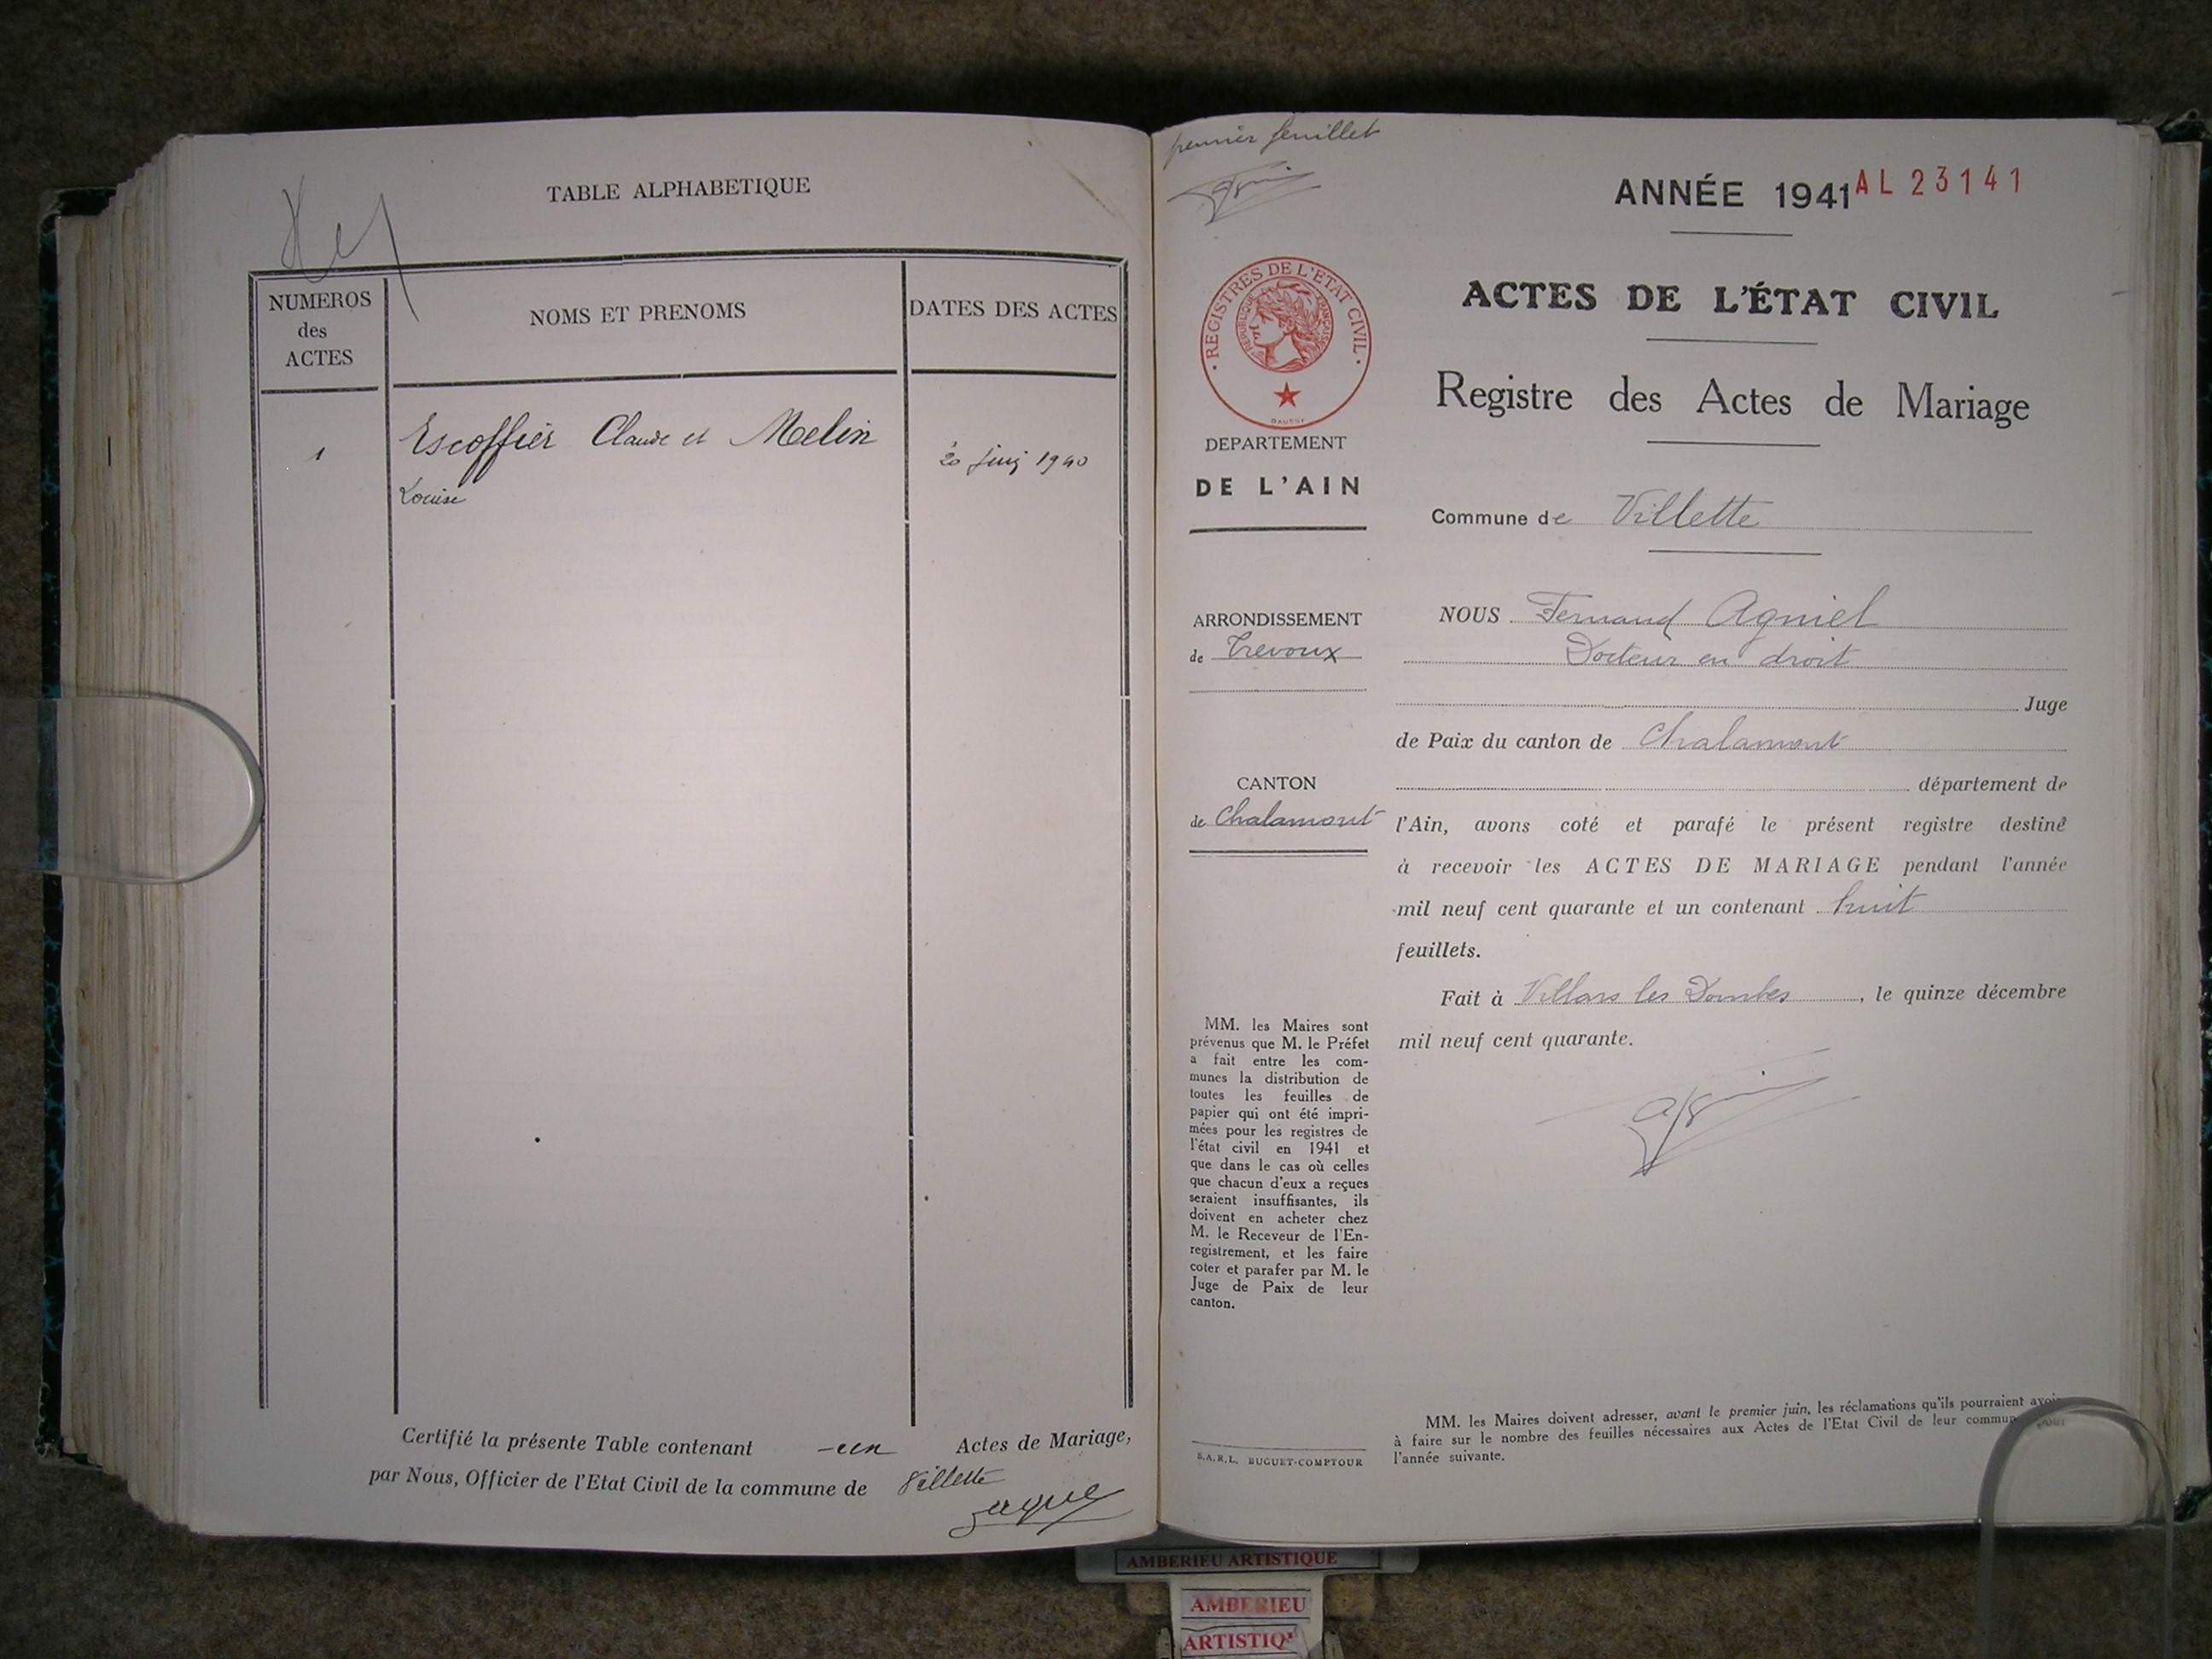 TABLE ALPHABETIQUE
NUMEROS
des
ACTES
NOMS ET PRENOMS
DATES DES ACTES
1
Escoffier Claude et Melin
Louise
20 juin 1940
Certifié la présente Table contenant un Actes de Mariage,
par Nous, Officier de l'Etat Civil de la commune de Villette
premier feuillet
ANNÉE 1941
AL 23141
REGISTRES DE L'ETAT CIVIL
REPUBLIQUE FRANÇAISE
ACTES DE L'ÉTAT CIVIL
Registre des Actes de Mariage
DEPARTEMENT
DE L'AIN
Commune de Villette
ARRONDISSEMENT
de Trevoux
CANTON
de Chalamont
NOUS Fernand Agniel
Docteur en droit
Juge
de Paix du canton de Chalamont
département de
l'Ain, avons coté et parafé le présent registre destiné
à recevoir les ACTES DE MARIAGE pendant l'année
mil neuf cent quarante et un contenant huit
feuillets.
Fait à Villars les Dombes, le quinze décembre
mil neuf cent quarante.
MM. les Maires sont
prévenus que M. le Préfet
a fait entre les com-
munes la distribution de
toutes les feuilles de
papier qui ont été impri-
mées pour les registres de
l'état civil en 1941 et
que dans le cas où celles
que chacun d'eux a reçues
seraient insuffisantes, ils
doivent en acheter chez
M. le Receveur de l'En-
registrement, et les faire
coter et parafer par M. le
Juge de Paix de leur
canton.
S.A.R.L. BUGUET-COMPTOUR
MM. les Maires doivent adresser, avant le premier juin, les réclamations qu'ils pourraient avoir
à faire sur le nombre des feuilles nécessaires aux Actes de l'Etat Civil de leur commune pour
l'année suivante.
AMBERIEU ARTISTIQUE
AMBERIEU
ARTISTIQ